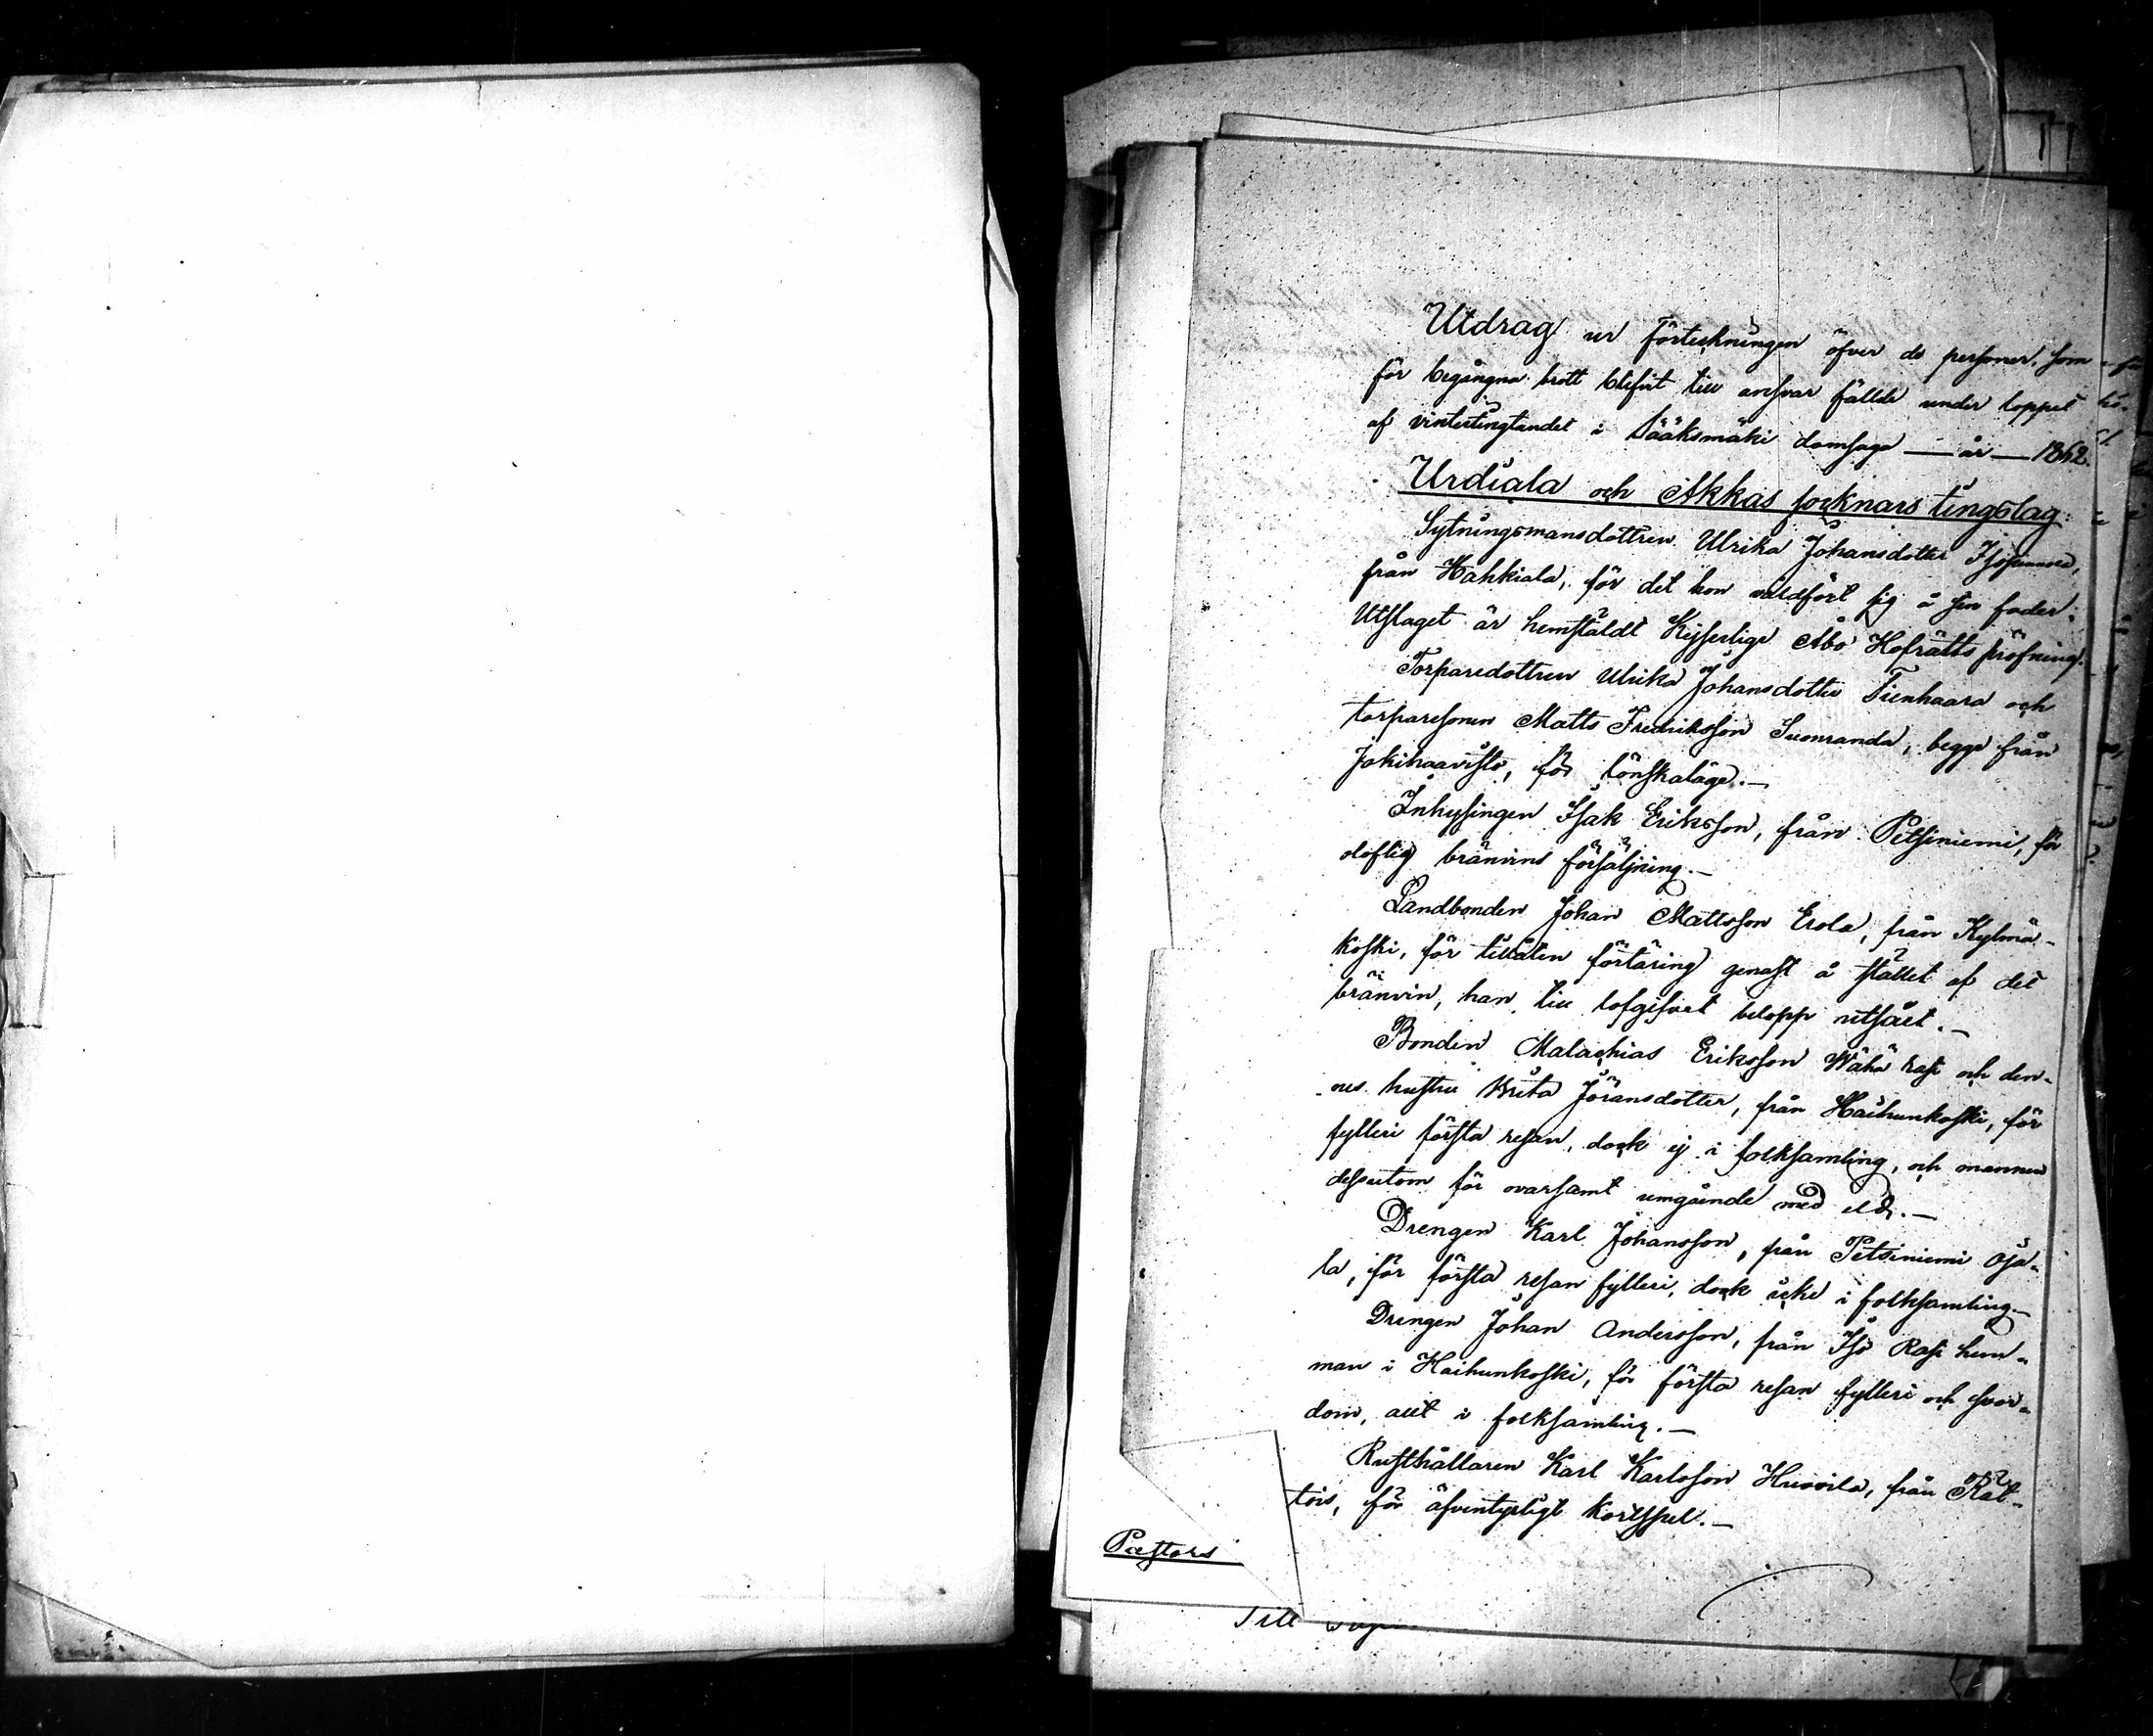 Utdrag ur Förteckningen öfver de personer, som
för begångna brott blifvit till ansvar fällde under loppet
af vintertingtandet i Sääksmäki domsaga — år — 1862.
Urdiala och Akkas socknars tingslag:
Sytningsmansdottren Ulrika Johansdotter
från Hahkiala, för det hon våldfört sig å sin fader:
Utslaget är hemstäldt Kejserlige Åbo Hofrätts pröfning.
Torparedottren Ulrika Johansdotter Tienhaara och
torparesonen Matts Fredriksson Suonranda, begge från
Jokihaavisto, för lönskaläge.—
Inhysingen Isak Eriksson, från Petsiniemi, för
oloflig bränvins försäljning.—
Landbonden Johan Mattsson Erola, från Kylmä-
koski, för tillåten förtäring genast å stället af det
bränvin, han till lofgifvet belopp utsålt.—
Bonden Malachias Eriksson Wähä Rasi och den-
nes hustru Brita Jöransdotter, från Haihunkoski, för
fylleri första resan, dock ej i folksamling, och mannen
dessutom för ovarsamt umgående med eld.—
Drengen Karl Johansson, från Petsiniemi Oja-
la, för första resan fylleri, dock icke i folksamling.—
Drengen Johan Andersson, från Iso Rasi hem-
man i Haihunkoski, för första resan fylleri och svor-
dom, allt i folksamling.—
Rusthållaren Karl Karlsson Huovila, från Rät-
tois, för äfventyrligt kortspel.—
Pastors
Till